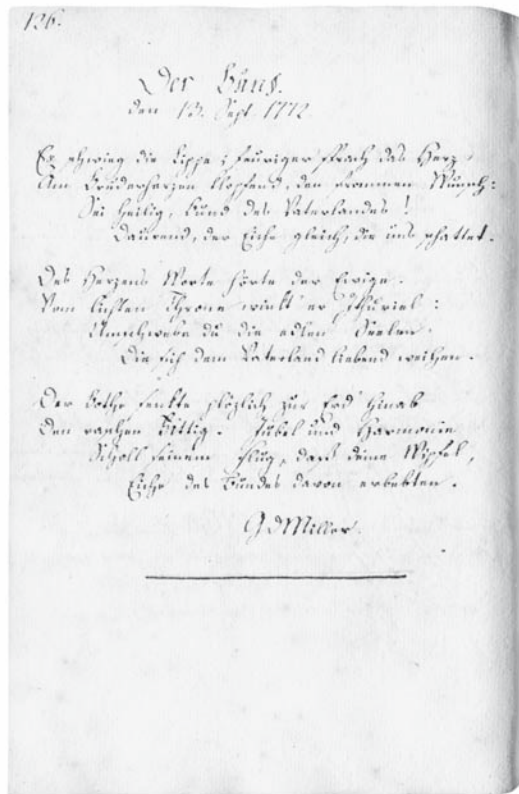 126.
Der Bund.
den 13. Sept. 1772.
Es schwieg die Lippe; feuriger sprach das Herz,
Am Bruderherzen klopfend, den frommen Wunsch:
Sei heilig, Bund des Vaterlandes!
Daurend, der Eiche gleich, die uns schattet.
Des Herzens Worte hörte der Ewige.
Vom lichten Throne winkt er Ithuriel:
Umschwebe du die edlen Seelen,
Die sich dem Vaterland liebend weihen.
Der Bothe senkte plözlich zur Erd' hinab
Den raschen Fittig. Jubel und Harmonie
Scholl seinem Flug, daß deine Wipfel,
Eiche des Bundes davon erbebten.
GDMiller.